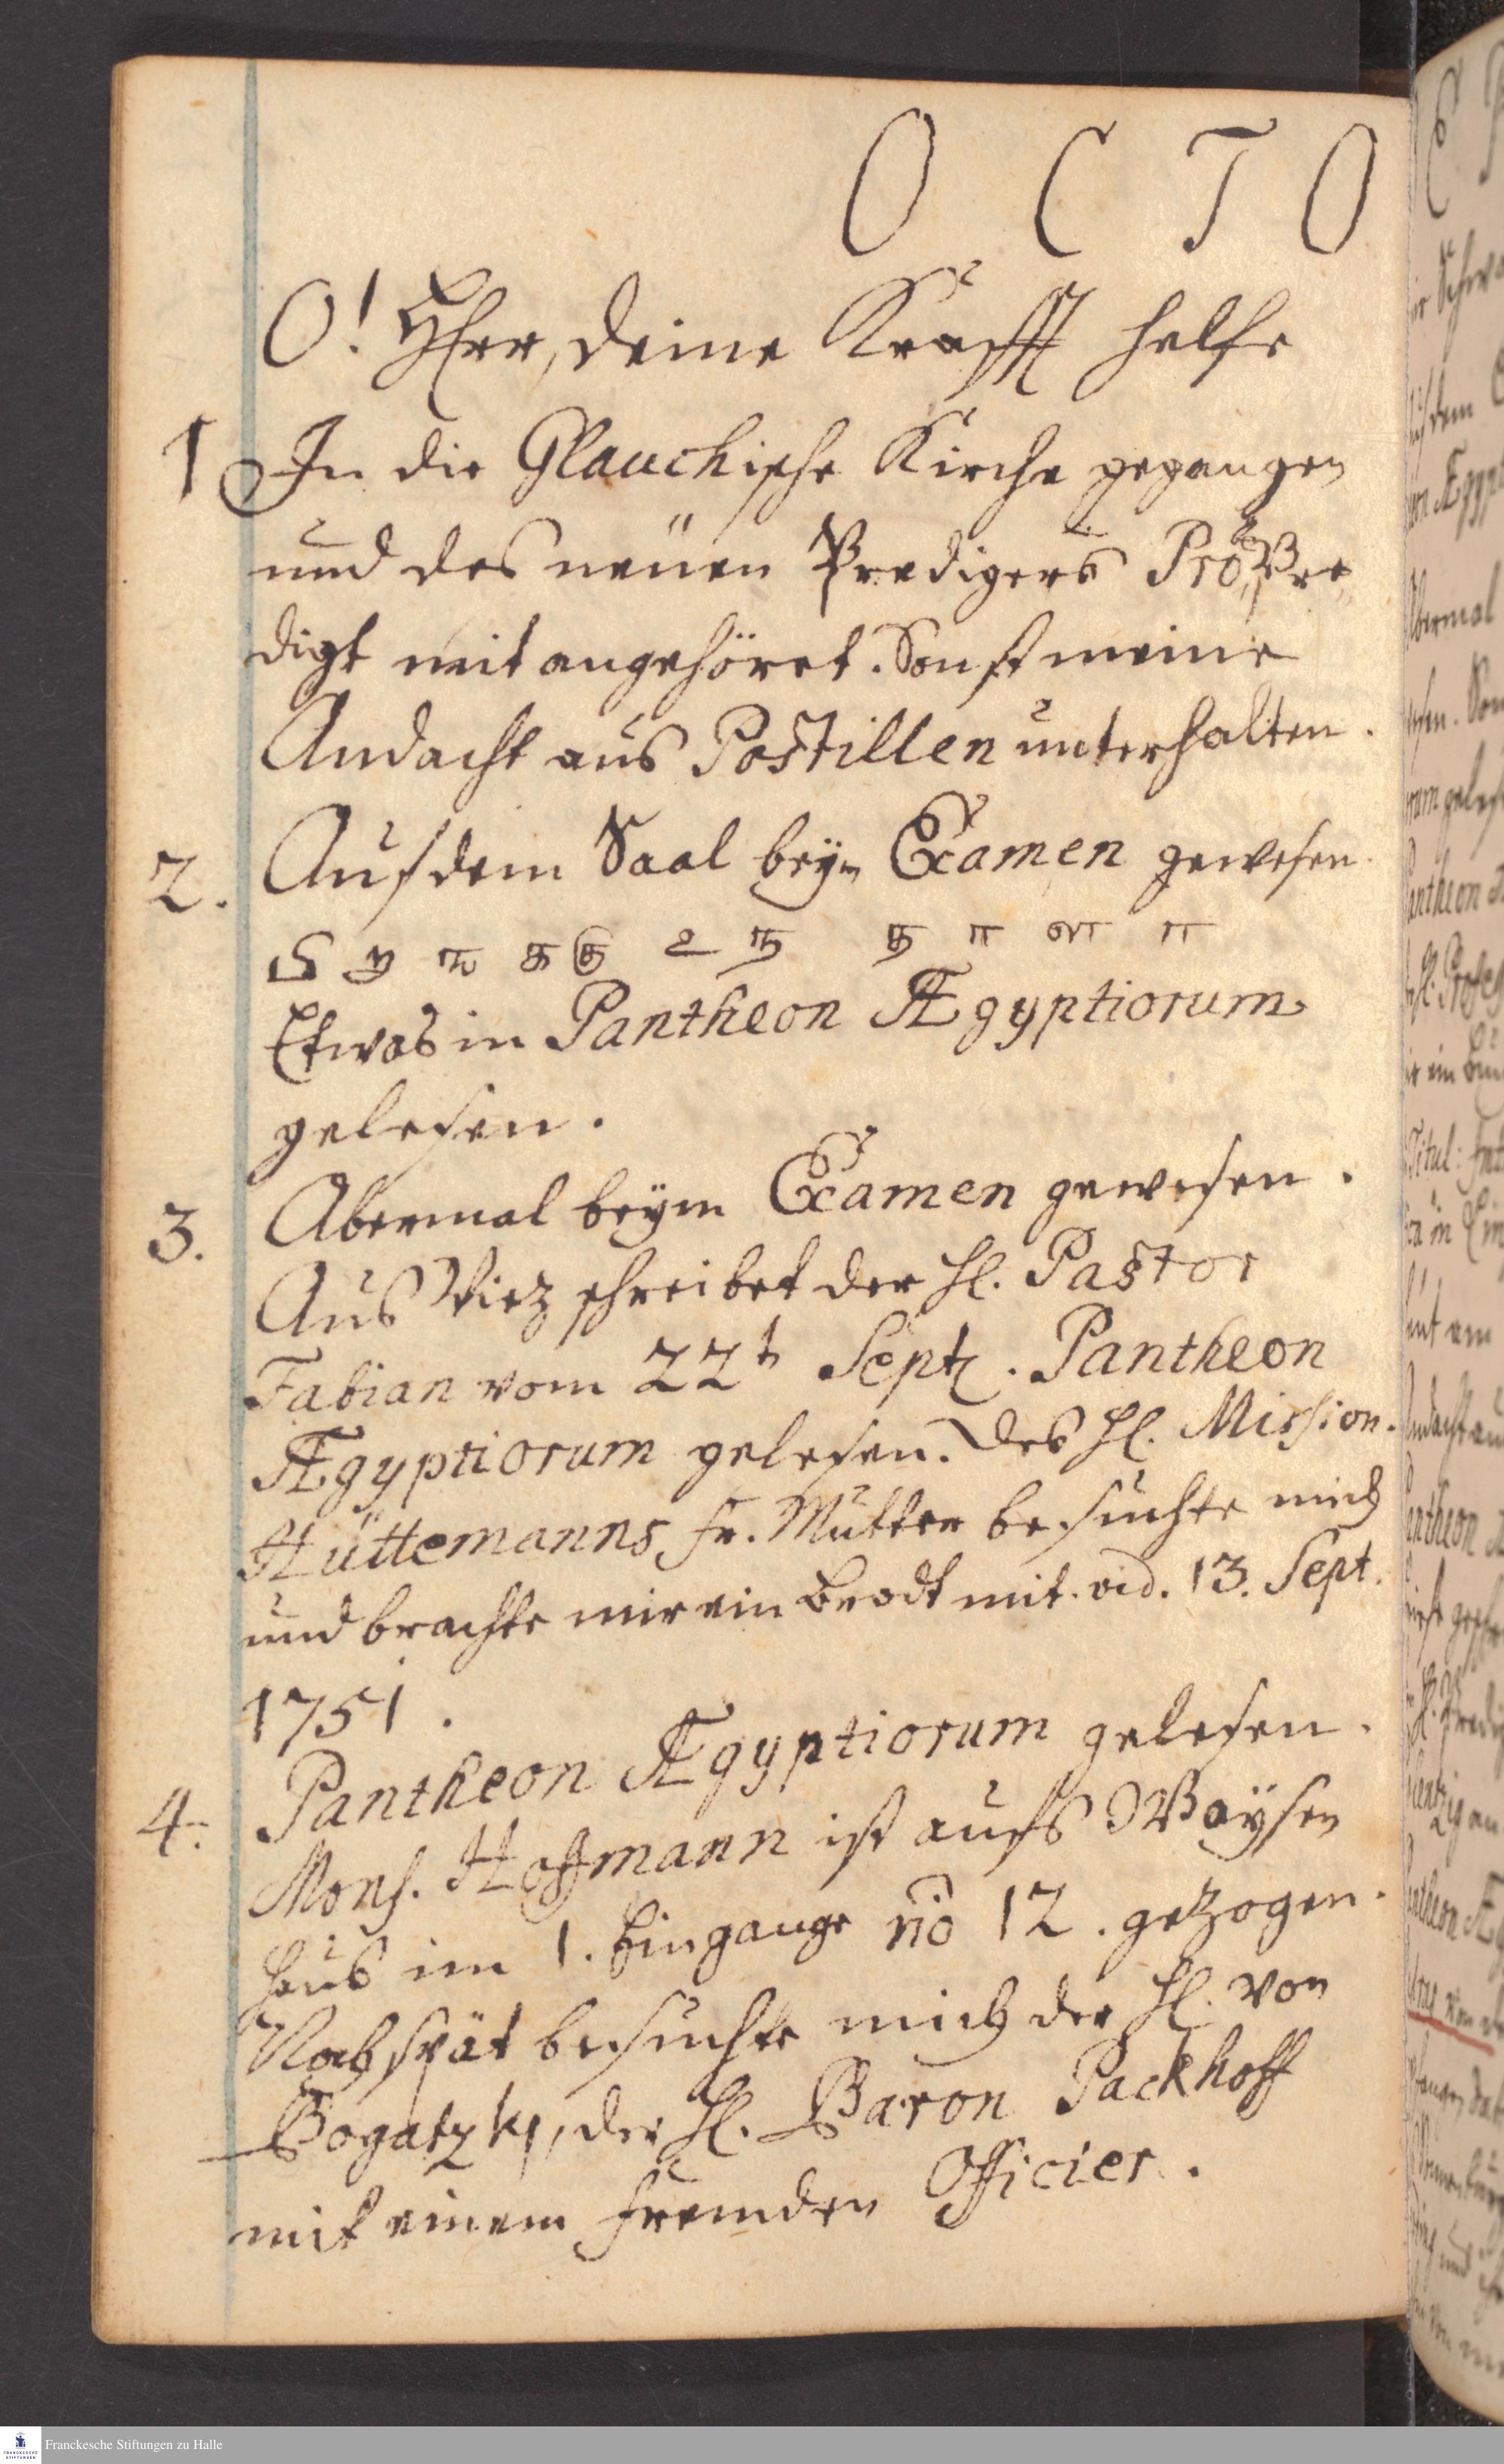 O C T O
O! HErr, deine Krafft helfe
1 In die Glauchische Kirche gegangen
und des neuen Predigers Prob Pre„
digt mit angehöret. Sonst meine
Andacht aus Postillen unterhalten.
2. Auf dem Saal beym Examen gewesen.
Etwas in Pantheon Ægyptiorum
gelesen.
3. Abermal beym Examen gewesen.
Aus schreibet der H. Pastor
Fabian vom 22t Sept. Pantheon
Ægyptiorum gelesen. Des H. Mission.
Hüttemanns Fr. Mutter besuchte mich
und brachte mir ein Brodt mit. vid. 13. Sept.
1751.
4. Pantheon Ægyptiorum gelesen.
Mons. Hoffmann ist aufs Waysen
haus im 1. Eingange no 12. gezogen.
Noch spät besuchte mich der H. von
Bogatzky, der H. Baron Packhoff
mit einem fremden Officier.
Franckesche Stiftungen zu Halle